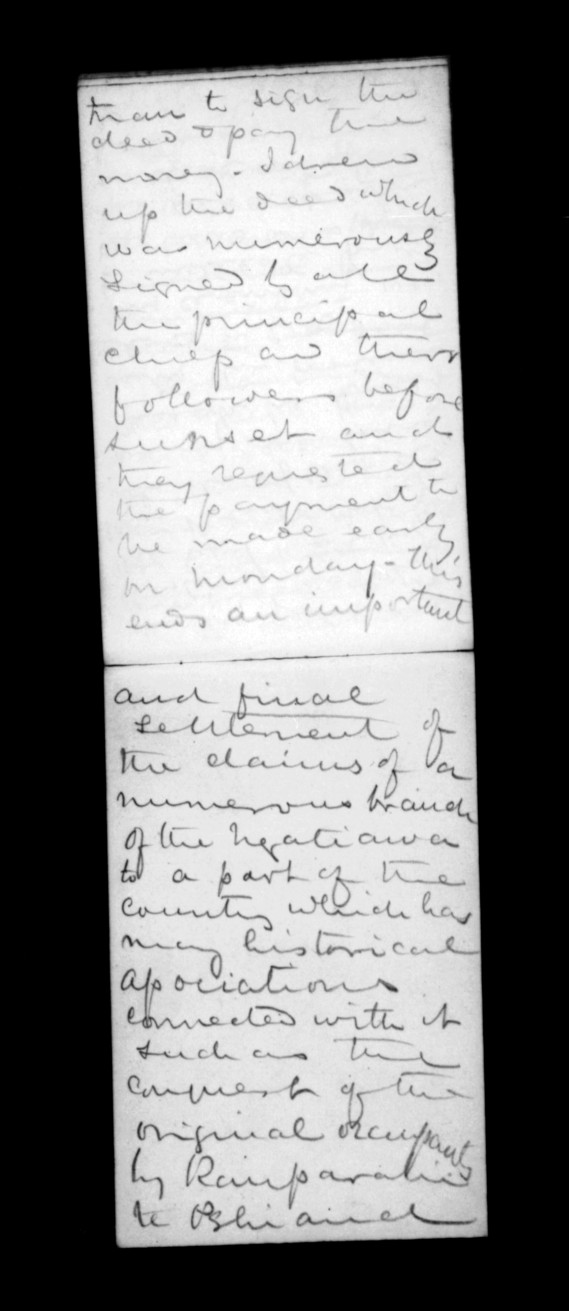 than to sign the
deed & pay the
money - I drew
up the deed which
was numerously
signed by all
the principal
chiefs and their
followers before
sunset and
they requested
the payment to
be made early
on Monday - this
ends an important
and final
settlement of
the claims of a
numerous branch
of the Ngatiawa
to a part of the
country which has
many historical
associations
connected with it
such as the
conquest of the
original occupants
by Rauparaha
te and